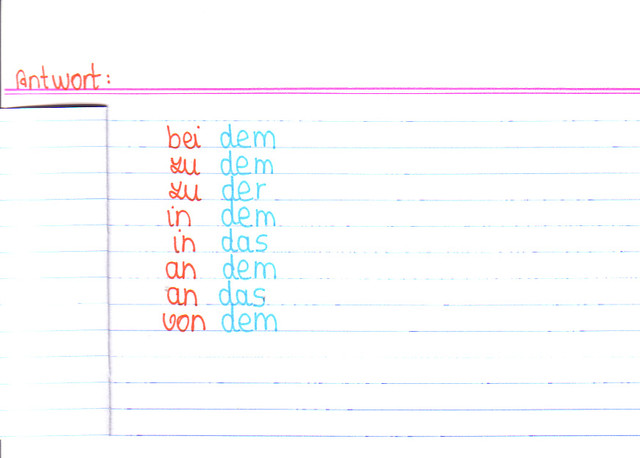 Antwort:
bei dem
zu dem
zu der
in dem
in das
an dem
an das
von dem